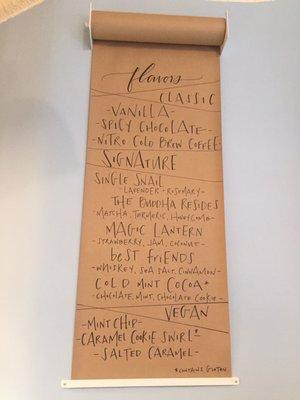 flavors
CLASSIC
-VANILLA-
-SPICY CHOCOLATE-
-NITRO COLD BREW COFFEE-
SIGNATURE
SINGLE SNAIL
-LAVENDER-ROSEMARY-
THE BUDDHA RESIDES
MATCHA, TURMERIC, HONEYCOMB-
MAGIC LANTERN
-STRAWBERRY, JAM, COCONUT-
best FRIENDS
-WHISKEY, SEA SALT, CINNAMON-
COLD MINT COCOA*
-CHOCOLATE, MINT, CHOCOLATE COOKIE-
VEGAN
-MINT CHIP-
-CARAMEL COOKIE SWIRL*-
-SALTED CARAMEL-
*CONTAINS GLUTEN